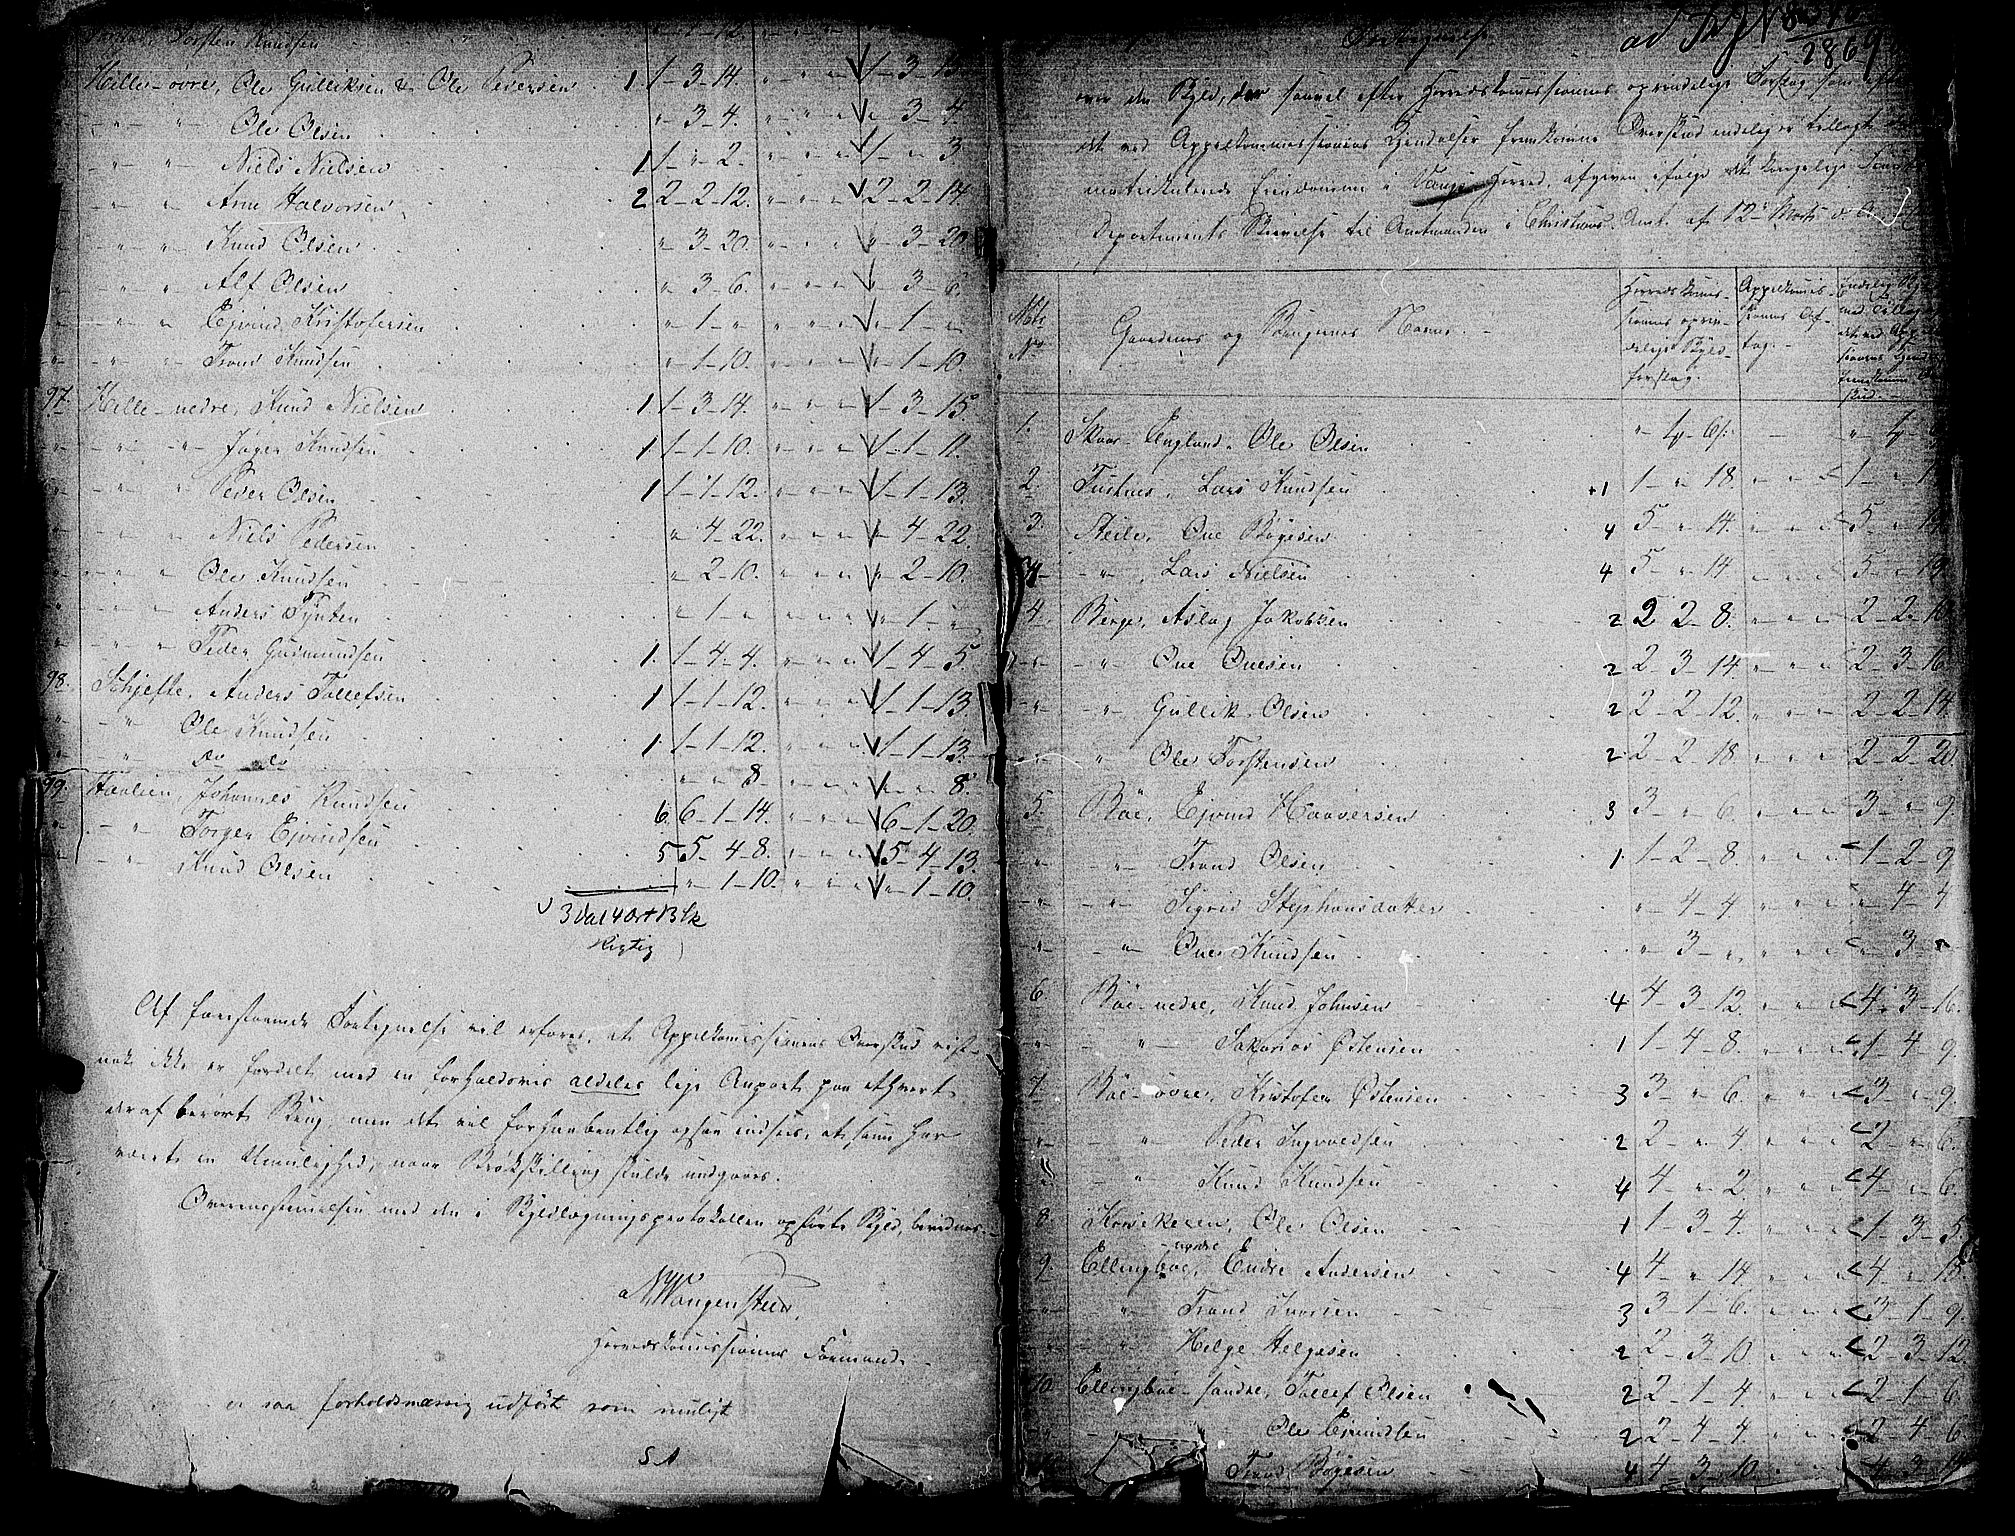 Torsten Knudsen
Hille øvre, Ole Gulliksen & Ole Pedersen 1 1-3-14. " " " 1-3-15
" " Ole Olsen " 3-4. " " " " 3-4
" " Niels Nielsen 1 1-"-2. " " " 1-"-3
" " Arne Halvorsen 2 2-2-12. " " " 2-2-14
" " Knud Olsen " 3-20. " " " " 3-20
" " Alf Olsen " 3-6. " " " " 3-6.
" " Ejvind Kristofersen " 1-" " " " " 1-"
" " Trond Knudsen " 1-10. " " " " 1-10
97. Hille nedre, Knud Nielsen 1 1-3-14. " " " 1-3-15
" " Jøger Knudsen 1 1-1-10. " " " 1-1-11.
" " Peder Olsen 1 1-1-12. " " " 1-1-13.
" " Niels Pedersen " 4-22. " " " " 4-22.
" " Ole Knudsen " 2-10. " " " " 2-10.
" " Anders Tynten " 1-" " " " " 1-"
" " Peder Gudmundsen 1. 1-4-4. " " " 1-4-5
98. Schjefte, Anders Tollefsen 1 1-1-12. " " " 1-1-13.
" " Ole Knudsen 1. 1-1-12. " " " 1-1-13.
" " do do " " 8 " " " " " 8.
99. Haalien, Johannes Knudsen 6. 6-1-14. " " " 6-1-20.
" " Torger Ejvindsen 5 5-4-8. " " " 5-4-13.
" " Knud Olsen " 1-10. " " " " 1-10.
3 Dal 4 Ort 13 Sk
Rigtig
Af forestaaende Fortegnelse vil erfares, at Appelkomissionens Overskud vist-
nok ikke er fordelt med en forholdsvis aldeles lige Anpart paa ethvert
deraf berørt Brug, men det vil forhaabentlig ogsaa indsees, at saa har
været en Umulighed, naar Brøkskilling skulde undgaaes.
Overensstemmelsen med den i Skyldlægningsprotokollen opførte Skyld, bevidnes.
Wangensteen,
Herredskomissionens Formand.
er saa forholdsmæssig udført som muligt
S A
Fortegnelse
over den Skyld, der saavel efter Herredskomissionens oprindelige Forslag som
det ved Appelkommissionens Kjendelser fremkomne Overskud endelig er tillagt
matrikulerede Eiendomme i Vangs Herred, afgiven ifølge det kongelige
Departements Skrivelse til Amtmanden i Christians Amt af 12te Marts
Mtr No Gaardenes og Brugenes Navne. Herredskomissionens oprindelige Skyldforslag. Appelkomissionens Aftag.
1. Skaar-England, Ole Olsen
2. Tustnes, Lars Knudsen 1 1-"-18. " " 1-"
3. Steile, Ove Bøyesen 4 5-"-14. " " 5-"
" Lars Nielsen 4 5-"-14 " " 5-"
4. Berge, Aslag Jakobsen 2 2 2-8. " " " 2-2-10
" Ove Ovesen 2 2-3-14. " " " 2-3-16
" Gullik Olsen 2 2-2-12. " " " 2-2-14
" Ole Torstensen 2 2-2-18. " " " 2-2-20
5. Bøe, Ejvind Haaversen 3 3-"-6. " " " 3-"-9.
" Trond Olsen 1. 1-2-8. " " " 1-2-9
" Sigrid Stephensdatter " 4-4. " " " " 4-4
" Ove Knudsen " 3-" " " " " 3-"
6. Bøe-nedre, Knud Johnsen 4 4-3-12. " " " 4-3-16.
" Sakarias Østensen 1 1-4-8. " " " 1-4-9.
7. Bøe-øvre, Kristofer Østensen 3 3-"-6. " " " 3-"-9.
" Peder Ingvaldsen 2 2-"-4. " " " 2-"-6.
" Knud Knudsen 4 4-"-2. " " " 4-"-6.
8. Korsikeren, Ole Olsen 1 1-3-4. " " " 1-3-5
9. Ellingbøe, nordre Endre Andersen 4 4-"-14. " " " 4-"-18
" Trond Ivarsen 3 3-1-6. " " " 3-1-9.
" Helge Helgesen 2 2-3-10. " " " 2-3-12.
10. Ellingbøe-søndre, Tollef Olsen 2 2-1-4. " " " 2-1-6
Ole Ejvindsen 2 2-4-4. " " " 2-4-6
Trond Bøyesen 4 4-3-10. 4-3-14